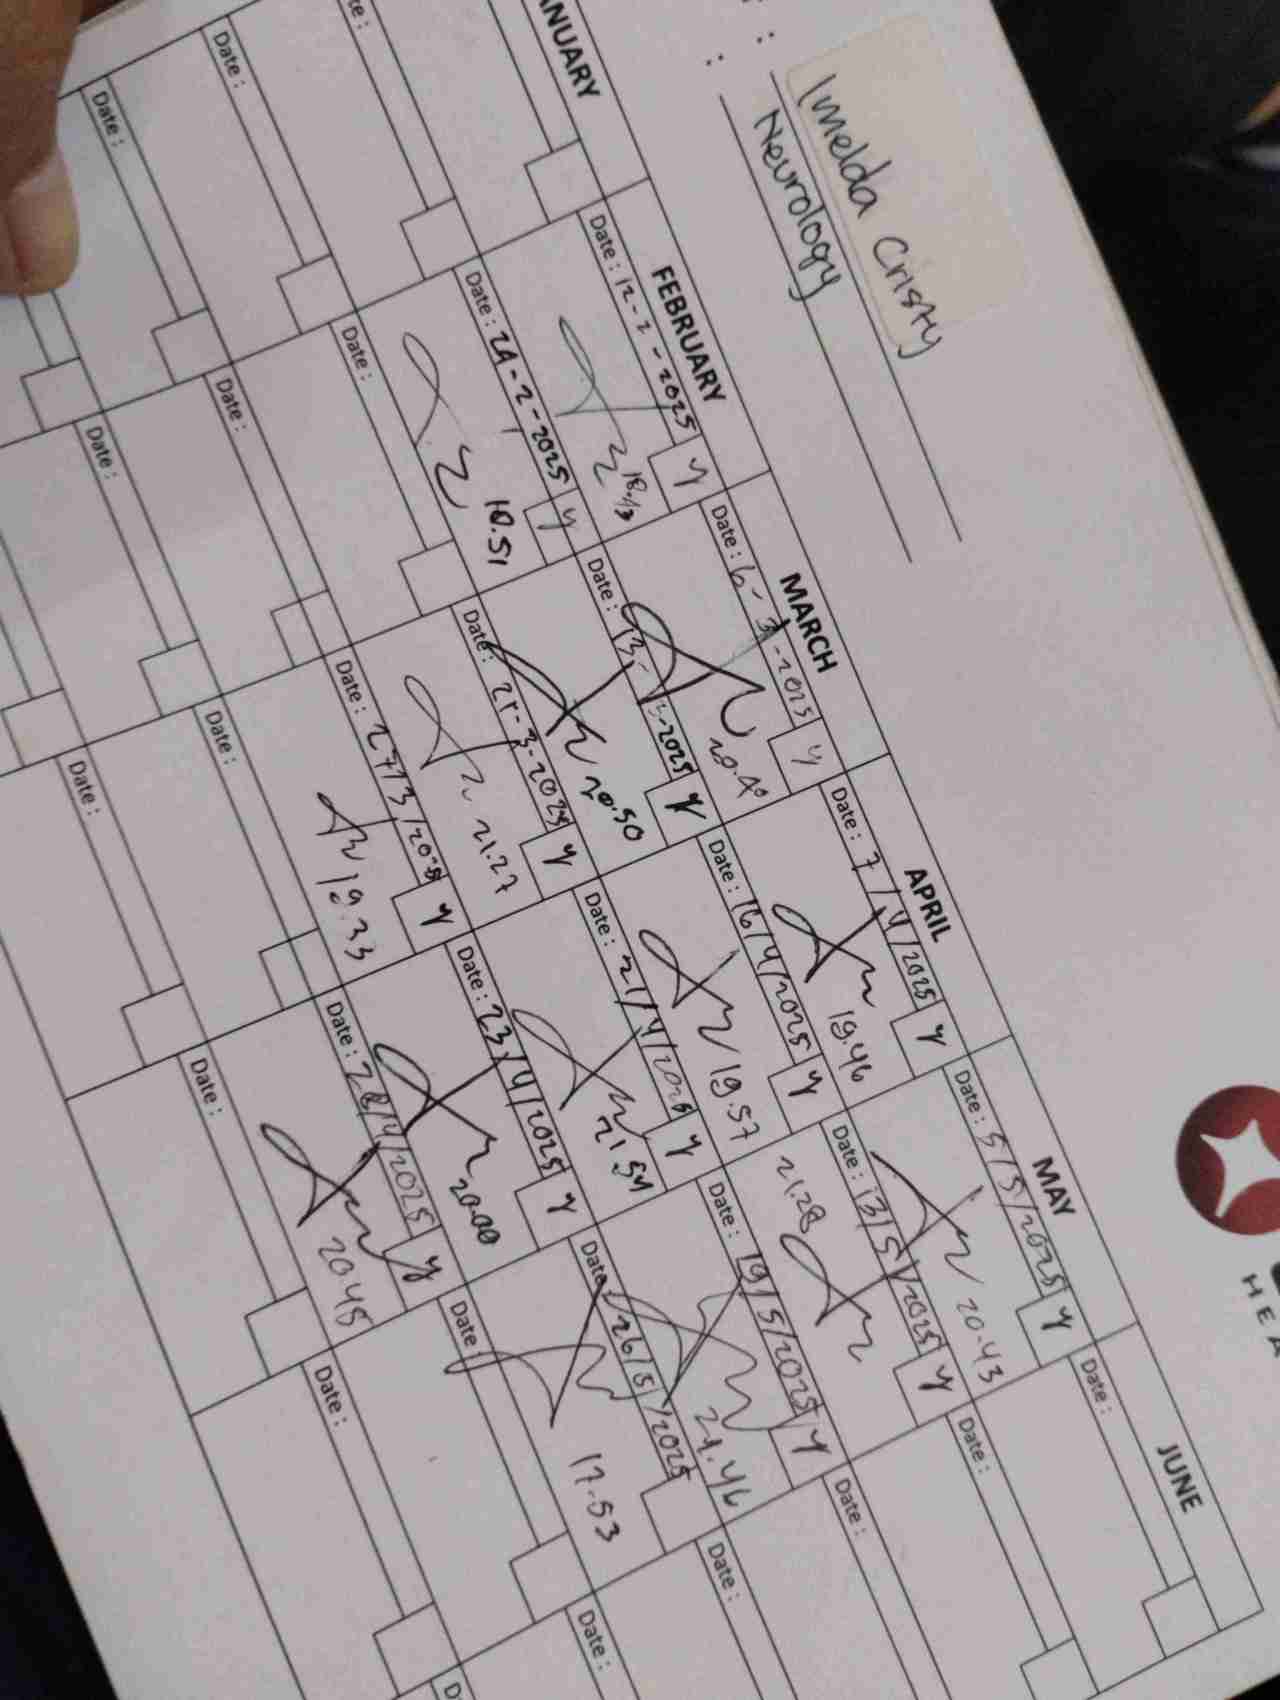 : Imelda Cristy
: Neurology
HEA
ANUARY
te :
Date :
Date :
FEBRUARY
Date : 12-2-2025 y
18.13
Date : 24-2-2025 y
18.51
Date :
Date :
Date :
MARCH
Date : 6-3-2025 y
20.40
Date : 13-3-2025 y
20.50
Date : 21-3-2025 y
21.27
Date : 27/3/2025 y
19.33
Date :
Date :
APRIL
Date : 7/4/2025 y
19.46
Date : 16/4/2025 y
19.57
Date : 21/4/2025 y
21.54
Date : 23/4/2025 y
20.00
Date : 28/4/2025 y
20.45
Date :
MAY
Date : 5/5/2025 y
20.43
Date : 13/5/2025 y
21.28
Date : 19/5/2025 y
21.46
Date : 26/5/2025
17.53
Date :
Date :
JUNE
Date :
Date :
Date :
Date :
Date :
D